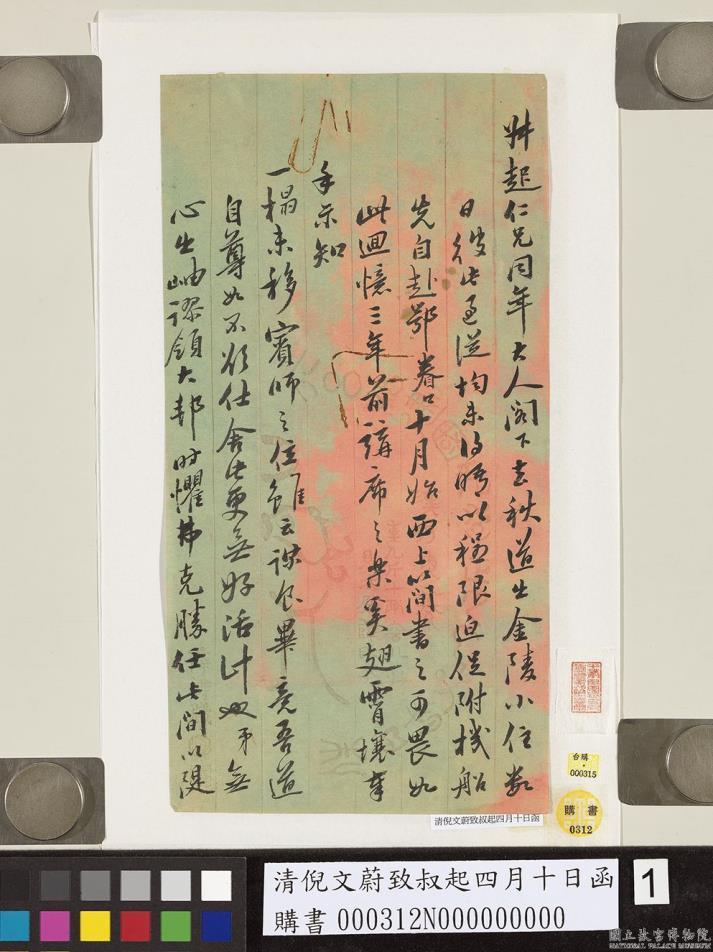 叔起仁兄同年大人閣下去秋道出金陵小住數
日彼此過從均未得晤以程限迫促附機船
先自赴鄂眷口十月始西上簡書之可畏如
此迴憶三年前講席之樂奚翅霄壤奉
手示知
一榻未移賓師之位雖云疎食畢竟吾道
自尊如不欲仕舍此更無好活計也弟無
心出岫謬領大邦時懼弗克勝任此間以隄
清倪文蔚致叔起四月十日函
台購
000315
購書
0312
清倪文蔚致叔起四月十日函
購書 000312N000000000
1
國立故宮博物院
NATIONAL PALACE MUSEUM